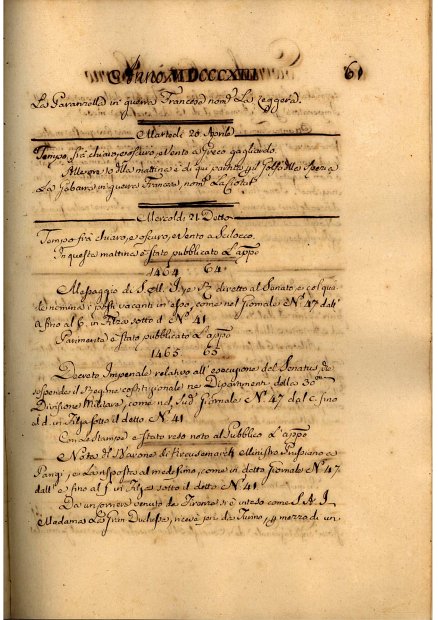 Anno MDCCCXIII 61
La Garanzella in guerra Francese nom.ª La Leggera.
Martedì 20 Aprile
Tempo frà chiaro, e oscuro, e Vento a Greco gagliardo.
Alle ore 10 della mattina è di qui partita pel Golfo della Spezia
La Gabarra in guerra Francese, nom.ª La
Mercoldì 21 Detto
Tempo frà chiaro, e oscuro, e Vento a Scilocco.
In questa mattina è stato pubblicato L'app.º
1464 64
Messaggio di S. M. I. e R. diretto al Senato, col quale
nomina i posti vacanti in esso, come nel Giornale N.º 47 dall'
a fino al b. in Filza sotto d. N.º 41
Parimente è stato pubblicato L'app.º
1465 65
Decreto Imperiale relativo all'esecuzione del Senatus, de
sospende il Regime costituzionale ne Dipartimenti della 30
Divisione Militare, come nel Sud.º Giornale N.º 47 dal c. fino
al d. in Filza sotto il detto N.º 41
Con le Stampe è stato reso noto al Pubblico L'app.º
Nota del Barone di Krusemarck Ministro Prussiano a
Parigi, e La risposta al medesimo, come in detto Giornale N.º 47
dall' e fino al f in Filza sotto il detto N.º 41.
Da un corriere venuto da Firenze si è inteso come S. A. I.
Madama La Gran Duchessa, riceve jeri da Torino, p mezzo di un